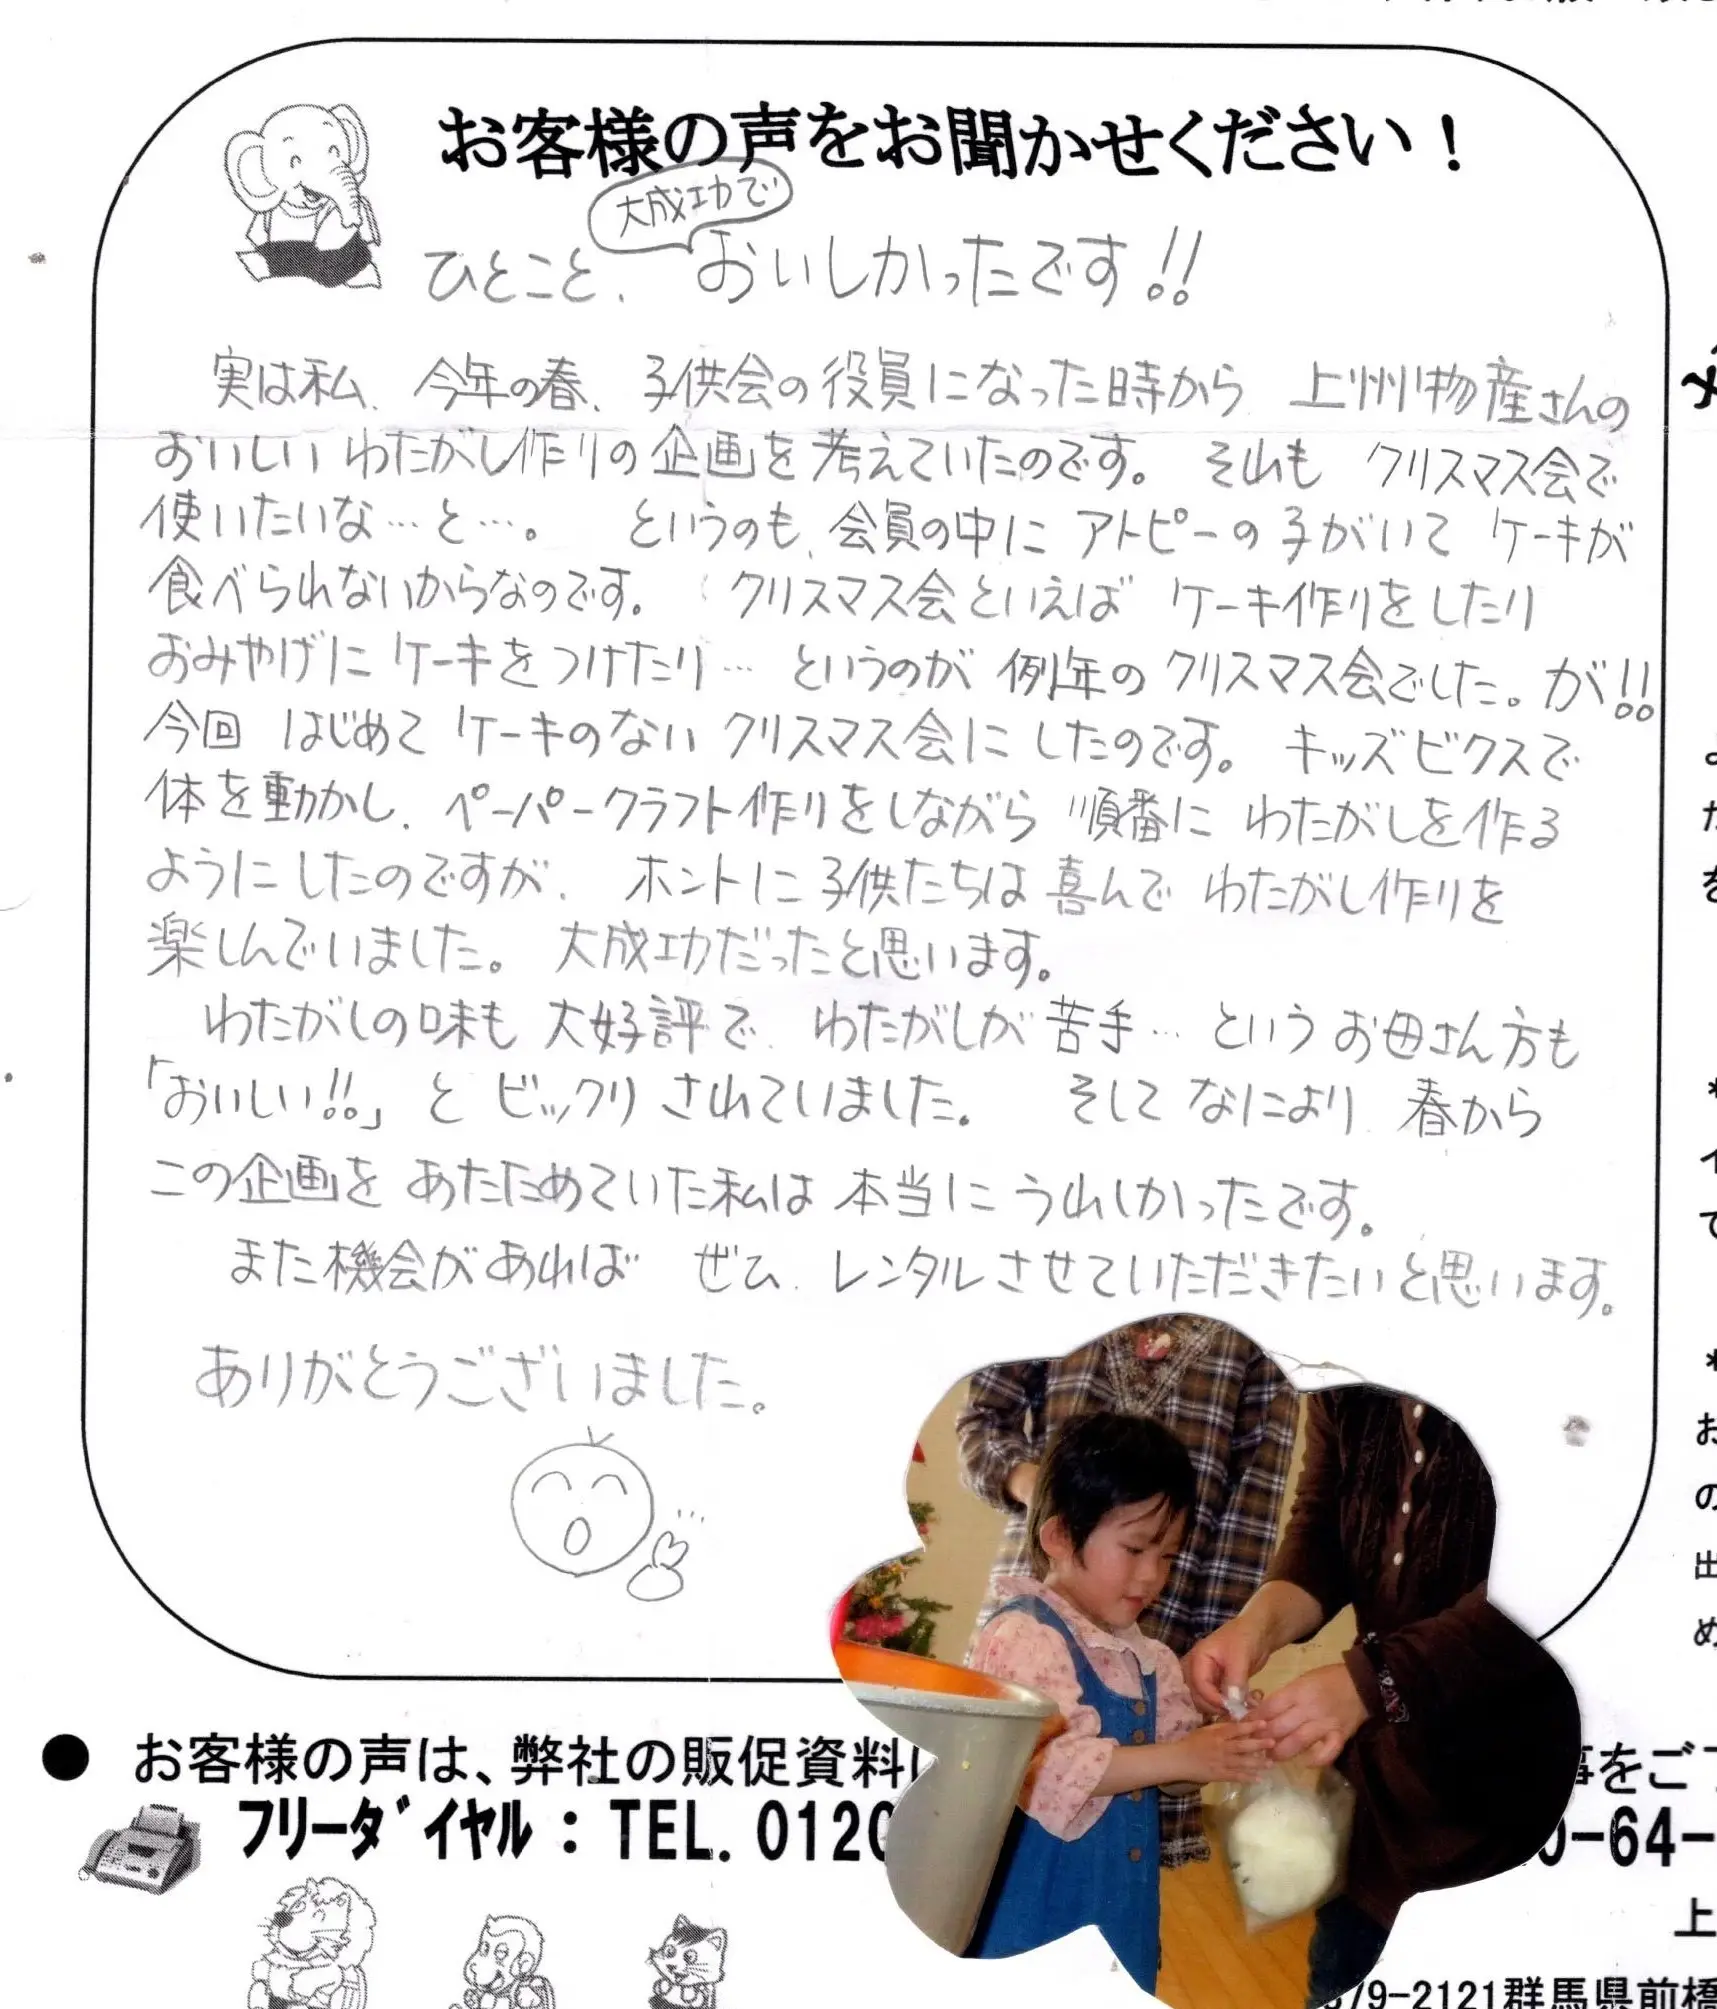 お客様の声をお聞かせください！
大成功で
ひとこと、おいしかったです!!
実は私、今年の春、子供会の役員になった時から 上州物産さんの
おいしい わたがし作りの企画を考えていたのです。 それも クリスマス会で
使いたいな…と…。 というのも、会員の中に アトピーの子がいて ケーキが
食べられないからなのです。 クリスマス会といえば ケーキ作りをしたり
おみやげに ケーキをつけたり… というのが 例年の クリスマス会でした。が!!
今回 はじめて ケーキのない クリスマス会に したのです。 キッズビクスで
体を動かし、ペーパークラフト作りをしながら 順番に わたがしを作る
ように したのですが、 ホントに 子供たちは 喜んで わたがし作りを
楽しんでいました。 大成功だったと思います。
わたがしの味も 大好評で、 わたがしが 苦手… という お母さん方も
「おいしい!!」 と ビックリ されていました。 そして なにより 春から
この企画を あたためていた私は 本当に うれしかったです。
また機会が あれば ぜひ、レンタルさせていただきたいと思います。
ありがとうございました。
● お客様の声は、弊社の販促資料
事をご
フリーダイヤル：TEL. 0120
0-64-
上
379-2121群馬県前橋
よ
た
を
*
イ
て
*
お
の
出
め